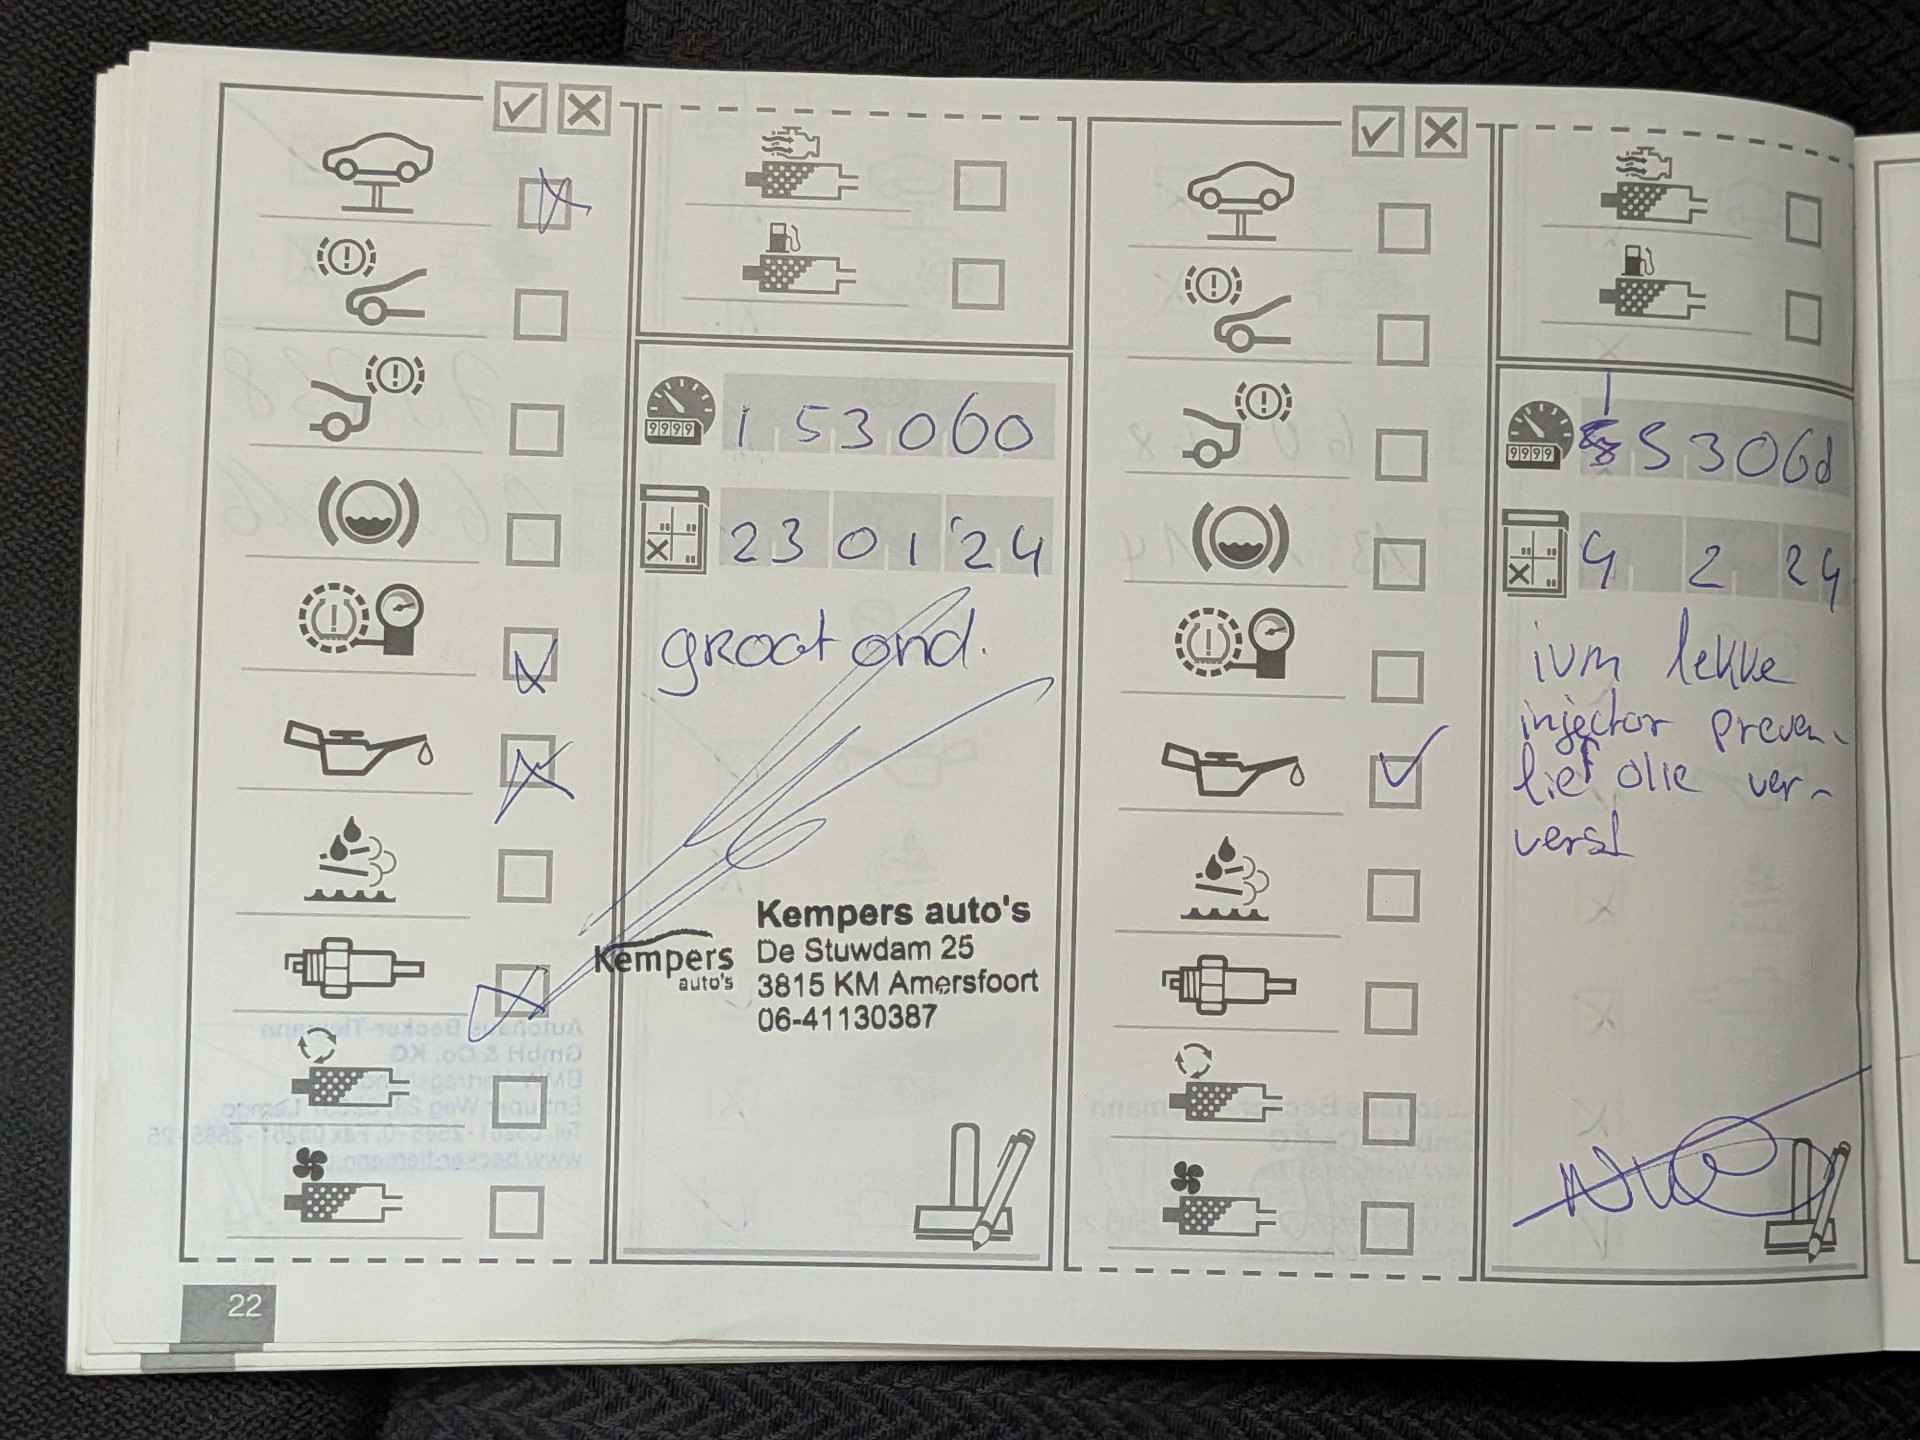 9999
153060
23 01 24
groot ond.
Kempers auto's
Kempers auto's
De Stuwdam 25
3815 KM Amersfoort
06-41130387
9999
153068
9 2 24
ivm lekke
injector preven-
tief olie ver-
verst
22